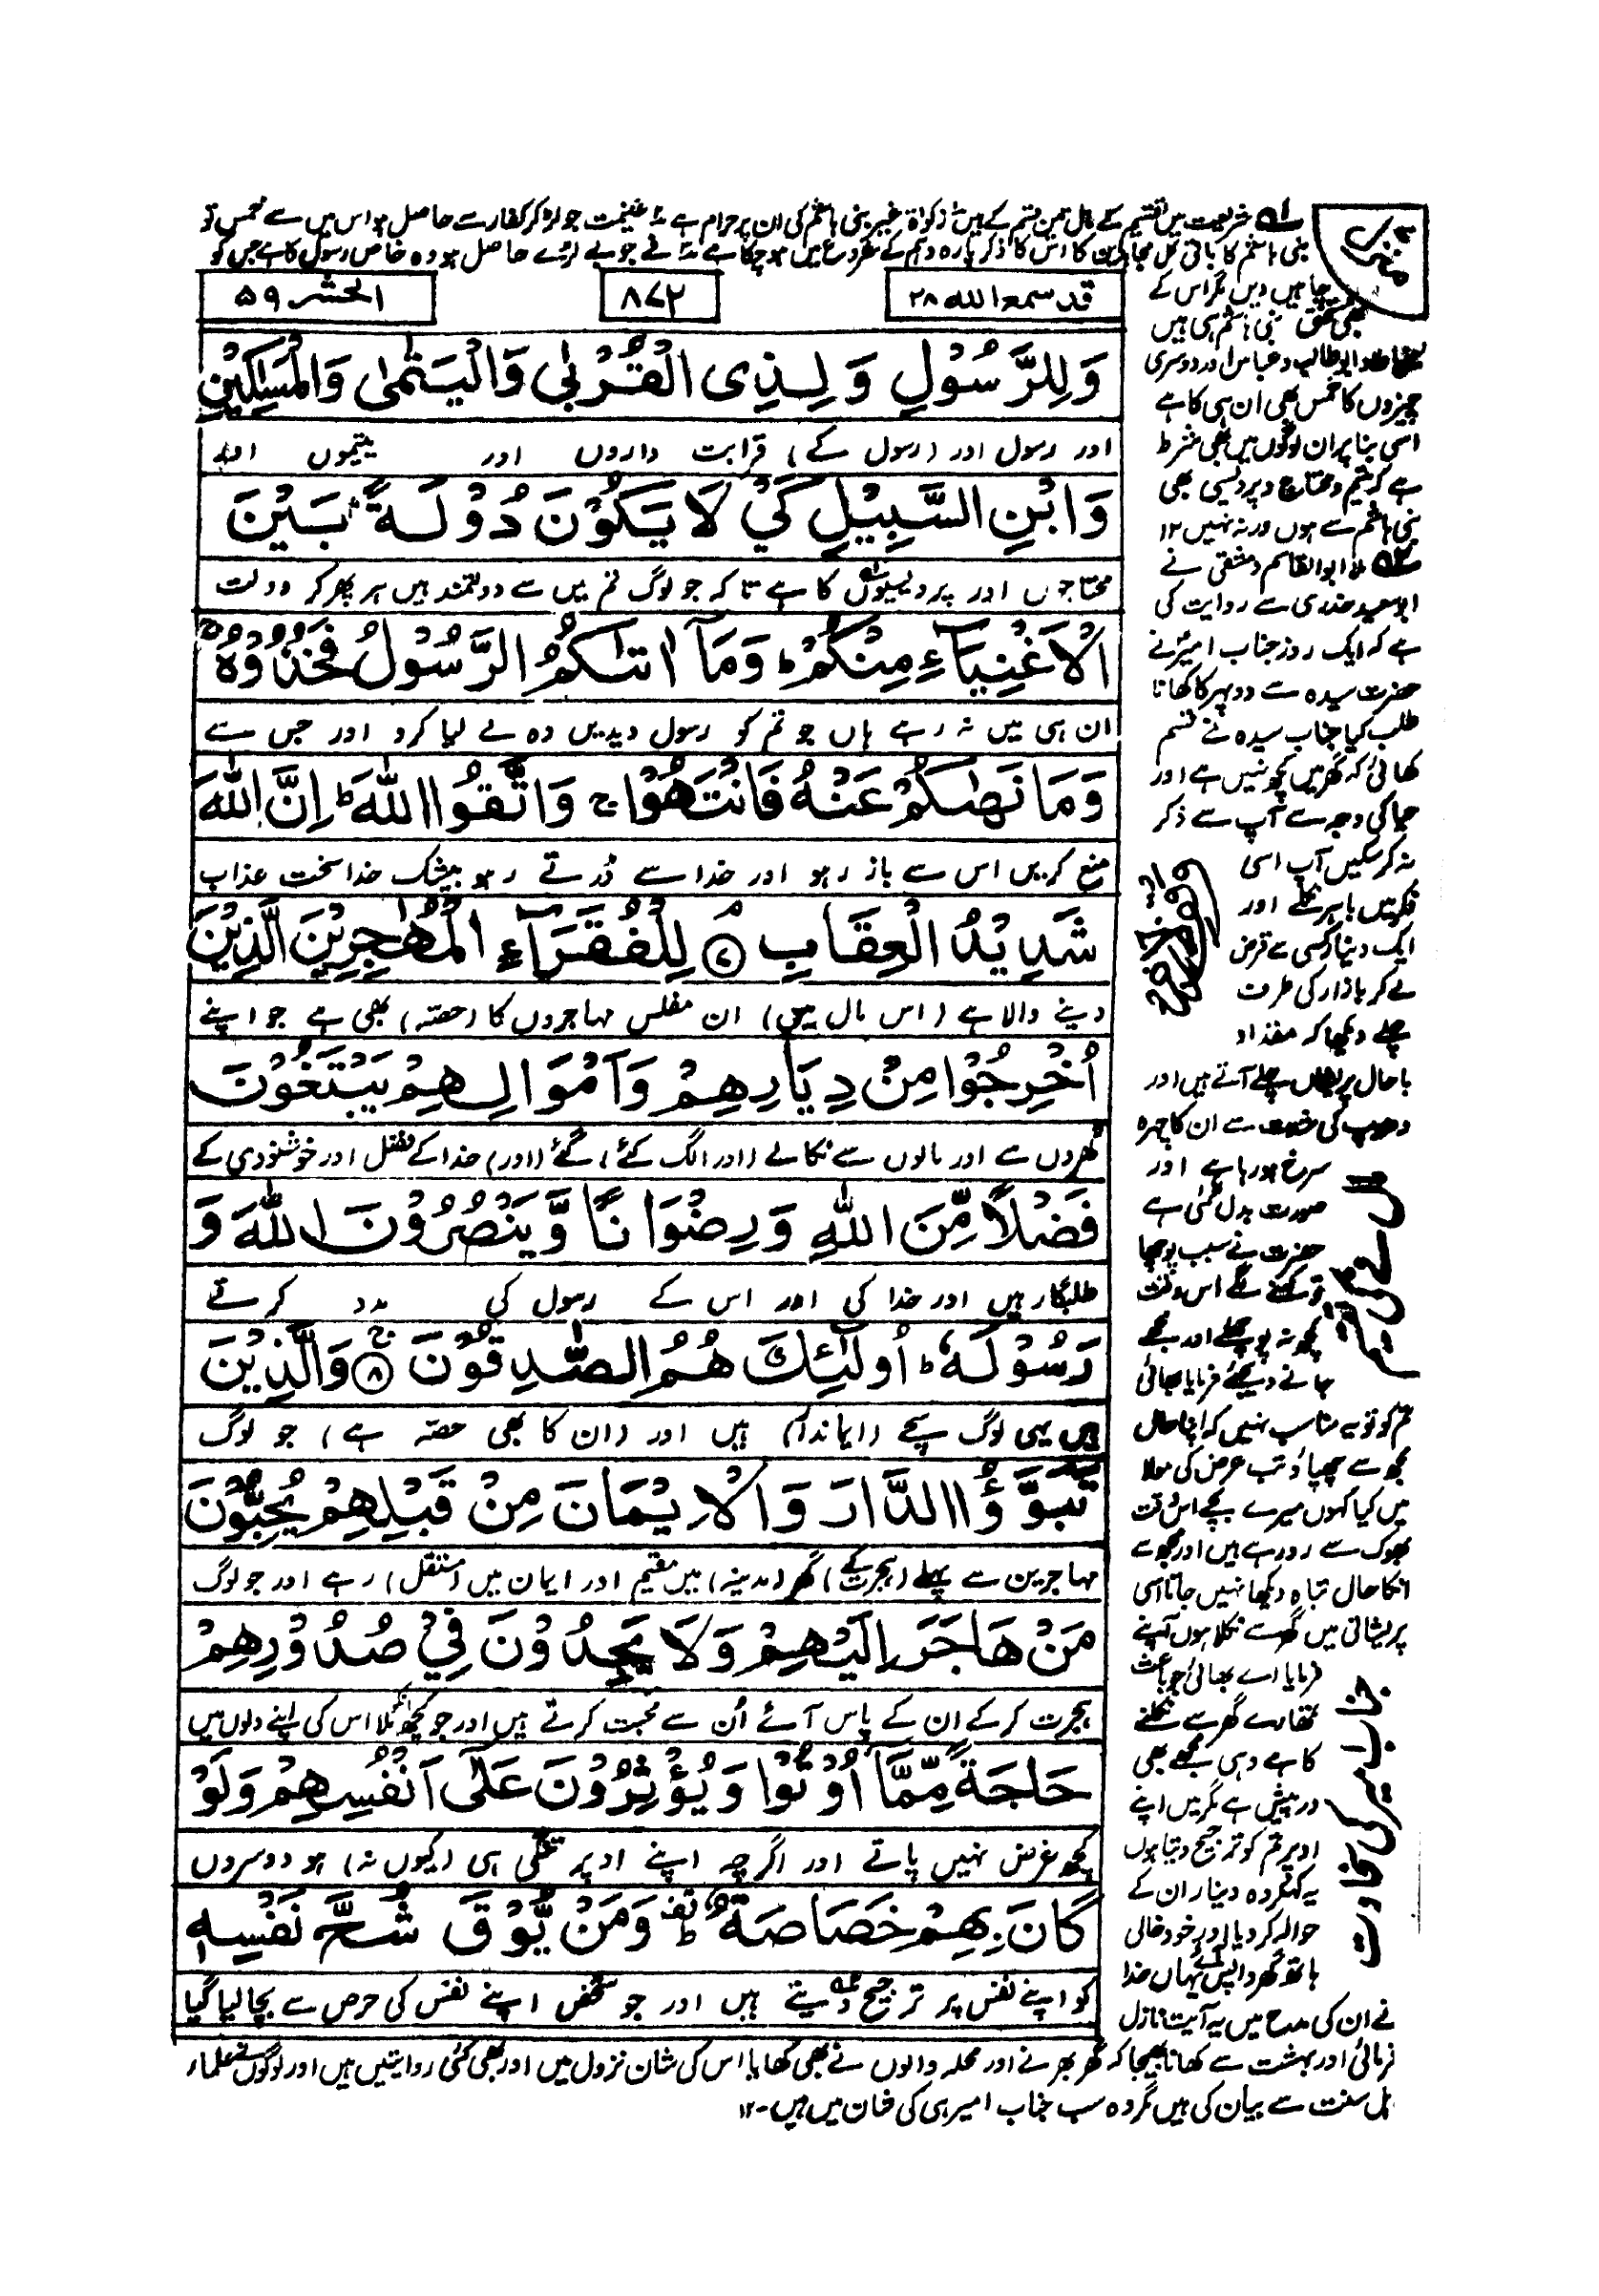 ۱؎ شریعت میں تقسیم کے مال تین قسم کے ہیں ۱ زکواۃ غیر بنی ہاشم کی ان پر حرام ہے ۲ غنیمت جو لڑ کر کفار سے حاصل ہو اس میں سے خمس تو
بنی ہاشم کا باقی کل مجاہدین کا اس کا ذکر پارہ دہم کے شروع میں ہو چکا ہے ۳ فے جو بے لڑے حاصل ہو وہ خاص رسول کا ہے جس کو
قد سمع اللہ ۲۸
۸۷۲
الحشر ۵۹
وَلِلرَّسُوْلِ وَلِذِی الْقُرْبٰی وَالْیَتٰمٰی وَالْمَسٰکِیْنِ
اور رسول اور (رسول کے) قرابت داروں اور یتیموں اور
وَابْنِ السَّبِیْلِ کَیْ لَا یَکُوْنَ دُوْلَةًۢ بَیْنَ
محتاجوں اور پردیسیوں کا ہے تا کہ جو لوگ تم میں سے دولتمند ہیں ہر پھر کر دولت
الْاَغْنِیَآءِ مِنْکُمْ ؕ وَمَاۤ اٰتٰىکُمُ الرَّسُوْلُ فَخُذُوْهُ ۗ
ان ہی میں نہ رہے ہاں جو تم کو رسول دیدیں وہ لے لیا کرو اور جس سے
وَمَا نَهٰىکُمْ عَنْهُ فَانْتَهُوْا ج وَاتَّقُوا اللّٰهَ ؕ اِنَّ اللّٰهَ
منع کریں اس سے باز رہو اور خدا سے ڈرتے رہو بیشک خدا سخت عذاب
شَدِیْدُ الْعِقَابِ ۘ ۷ لِلْفُقَرَآءِ الْمُهٰجِرِیْنَ الَّذِیْنَ
دینے والا ہے (اس مال میں) ان مفلس مہاجروں کا (حصّہ) بھی ہے جو اپنے
اُخْرِجُوْا مِنْ دِیَارِهِمْ وَاَمْوَالِهِمْ یَبْتَغُوْنَ
گھروں سے اور مالوں سے نکالے (اور الگ کئے) گئے (اور) خدا کے فضل اور خوشنودی کے
فَضْلًا مِّنَ اللّٰهِ وَرِضْوَانًا وَّیَنْصُرُوْنَ اللّٰهَ وَ
طلبگار ہیں اور خدا کی اور اس کے رسول کی مدد کرتے
رَسُوْلَهٗ ؕ اُولٰٓئِكَ هُمُ الصّٰدِقُوْنَ ج ۸ وَالَّذِیْنَ
ہیں یہی لوگ سچے (ایماندار) ہیں اور (ان کا بھی حصّہ ہے) جو لوگ
تَبَوَّؤُا الدَّارَ وَالْاِیْمَانَ مِنْ قَبْلِهِمْ یُحِبُّوْنَ
مہاجرین سے پہلے (ہجرت کے) گھر (مدینہ) میں مقیم اور ایمان میں (مستقل) رہے اور جو لوگ
مَنْ هَاجَرَ اِلَیْهِمْ وَلَا یَجِدُوْنَ فِیْ صُدُوْرِهِمْ
ہجرت کر کے ان کے پاس آئے اُن سے محبت کرتے ہیں اور جو کچھ انکو ملا اس کی اپنے دلوں میں
حَاجَةً مِّمَّاۤ اُوْتُوْا وَیُؤْثِرُوْنَ عَلٰۤی اَنْفُسِهِمْ وَلَوْ
کچھ غرض نہیں پاتے اور اگرچہ اپنے اوپر تنگی ہی (کیوں نہ) ہو دوسروں
کَانَ بِهِمْ خَصَاصَةٌ ؕ قف وَمَنْ یُّوْقَ شُحَّ نَفْسِهٖ
کو اپنے نفس پر ترجیح دیتے ہیں اور جو شخص اپنے نفس کی حرص سے بچا لیا گیا
چاہیں دیں مگر اس کے
بھی مستحق بنی ہاشم ہی ہیں
ابوطالب و عباس اور دوسری
چیزوں کا خمس بھی ان ہی کا ہے
اسی بنا پر ان لوگوں میں بھی شرط
ہے کہ یتیم و محتاج و پردیسی بھی
بنی ہاشم سے ہوں ورنہ نہیں ۱۲
۲؎ ابوالقاسم دمشقی نے
ابوسعید خدری سے روایت کی
ہے کہ ایک روز جناب امیرؑ نے
حضرت سیدہ سے دوپہر کا کھانا
طلب کیا جناب سیدہ نے قسم
کھائی کہ گھر میں کچھ نہیں ہے اور
حیا کی وجہ سے آپ سے ذکر
نہ کر سکیں آپ اسی
فکر میں باہر نکلے اور
ایک دینار کسی سے قرض
لے کر بازار کی طرف
چلے دیکھا کہ مقداد
باحال پریشاں چلے آتے ہیں اور
دھوپ کی شدت سے ان کا چہرہ
سرخ ہو رہا ہے اور
صورت بدل گئی ہے
حضرت نے سبب پوچھا
تو کہنے لگے اس وقت
کچھ نہ پوچھئے اور مجھے
جانے دیجئے فرمایا بھائی
تم کو تو یہ مناسب نہیں کہ اپنا حال
مجھ سے چھپاؤ تب عرض کی مولا
میں کیا کہوں میرے بچے اس وقت
بھوک سے رو رہے ہیں اور مجھ سے
انکا حال تباہ دیکھا نہیں جاتا اسی
پریشانی میں گھر سے نکلا ہوں آپنے
فرمایا اے بھائی جو باعث
تمھارے گھر سے نکلنے
کا ہے وہی مجھے بھی
درپیش ہے مگر میں اپنے
اوپر تم کو ترجیح دیتا ہوں
یہ کہکر وہ دینار ان کے
حوالہ کر دیا اور خود خالی
ہاتھ گھر واپس آئے یہاں خدا
نے ان کی مدح میں یہ آیت نازل
جناب امیر کی سخاوت
فرمائی اور بہشت سے کھانا بھیجا کہ گھر بھر نے اور محلہ والوں نے بھی کھایا اس کی شان نزول میں اور بھی کئی روایتیں ہیں اور لوگوں نے علماء
اہل سنت سے بیان کی ہیں مگر وہ سب جناب امیر ہی کی شان میں ہیں ۱۲